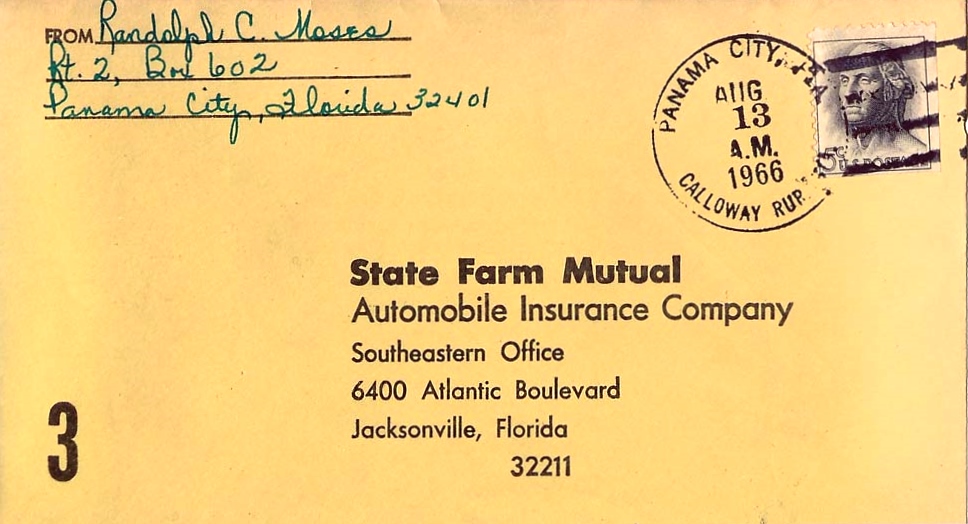 FROM Randolph C. Moses
Rt. 2, Box 602
Panama City, Florida 32401
PANAMA CITY, FLA
AUG
13
A.M.
1966
CALLOWAY RUR.
5c
U.S. POSTAGE
State Farm Mutual
Automobile Insurance Company
Southeastern Office
6400 Atlantic Boulevard
Jacksonville, Florida
32211
3